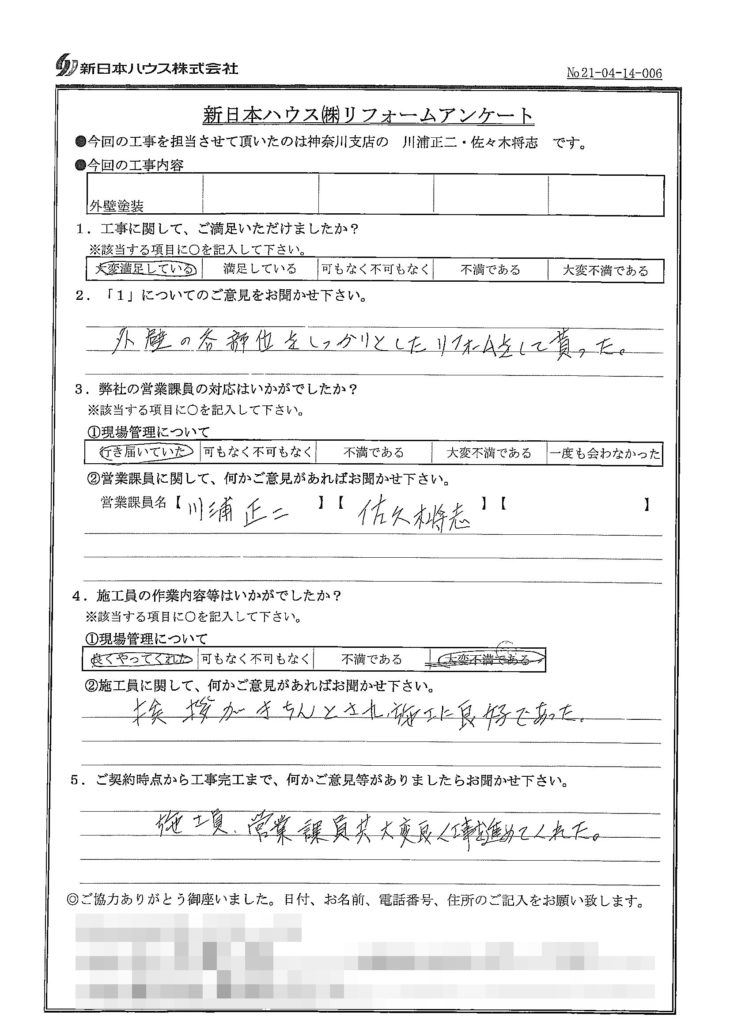 新日本ハウス株式会社
№21-04-14-006
新日本ハウス㈱リフォームアンケート
●今回の工事を担当させて頂いたのは神奈川支店の 川浦正二・佐々木将志 です。
●今回の工事内容
外壁塗装
1．工事に関して、ご満足いただけましたか？
※該当する項目に○を記入して下さい。
大変満足している 満足している 可もなく不可もなく 不満である 大変不満である
2．「1」についてのご意見をお聞かせ下さい。
外壁の各部位をしっかりとしたリフォームをして貰った。
3．弊社の営業課員の対応はいかがでしたか？
※該当する項目に○を記入して下さい。
①現場管理について
行き届いていた 可もなく不可もなく 不満である 大変不満である 一度も会わなかった
②営業課員に関して、何かご意見があればお聞かせ下さい。
営業課員名【川浦正二】【佐久木将志】【 】
4．施工員の作業内容等はいかがでしたか？
※該当する項目に○を記入して下さい。
①現場管理について
良くやってくれた 可もなく不可もなく 不満である 大変不満である
②施工員に関して、何かご意見があればお聞かせ下さい。
挨拶がきちんとされ、施工に良好であった。
5．ご契約時点から工事完工まで、何かご意見等がありましたらお聞かせ下さい。
施工員、営業課員共大変良く工事を進めてくれた。
◎ご協力ありがとう御座いました。日付、お名前、電話番号、住所のご記入をお願い致します。